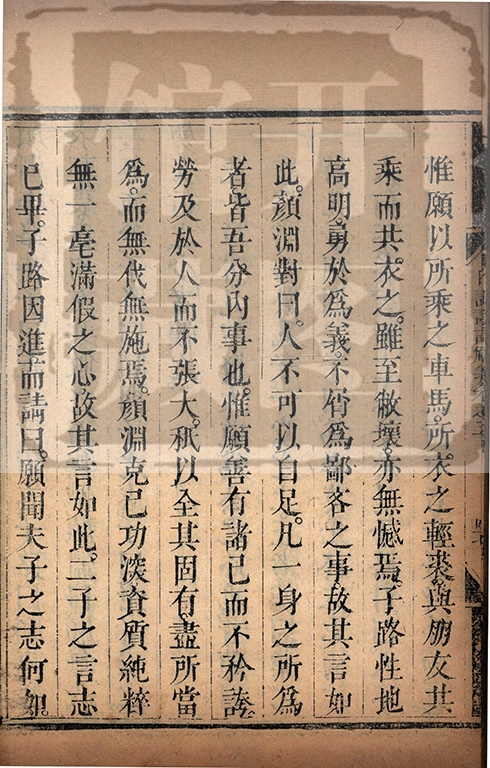 惟願以所乘之車馬。所衣之輕裘。與朋友共
乘而共衣之。雖至敝壞。亦無憾焉。子路性地
高明。勇於爲義。不屑爲鄙吝之事。故其言如
此。顏淵對曰。人不可以自足。凡一身之所爲
者。皆吾分內事也。惟願善有諸己而不矜誇。
勞及於人而不張大。秖以全其固有。盡所當
爲。而無伐無施焉。顏淵克己功深。資質純粹
無一毫滿假之心。故其言如此。二子之言志
已畢。子路因進而請曰。願聞夫子之志何如。